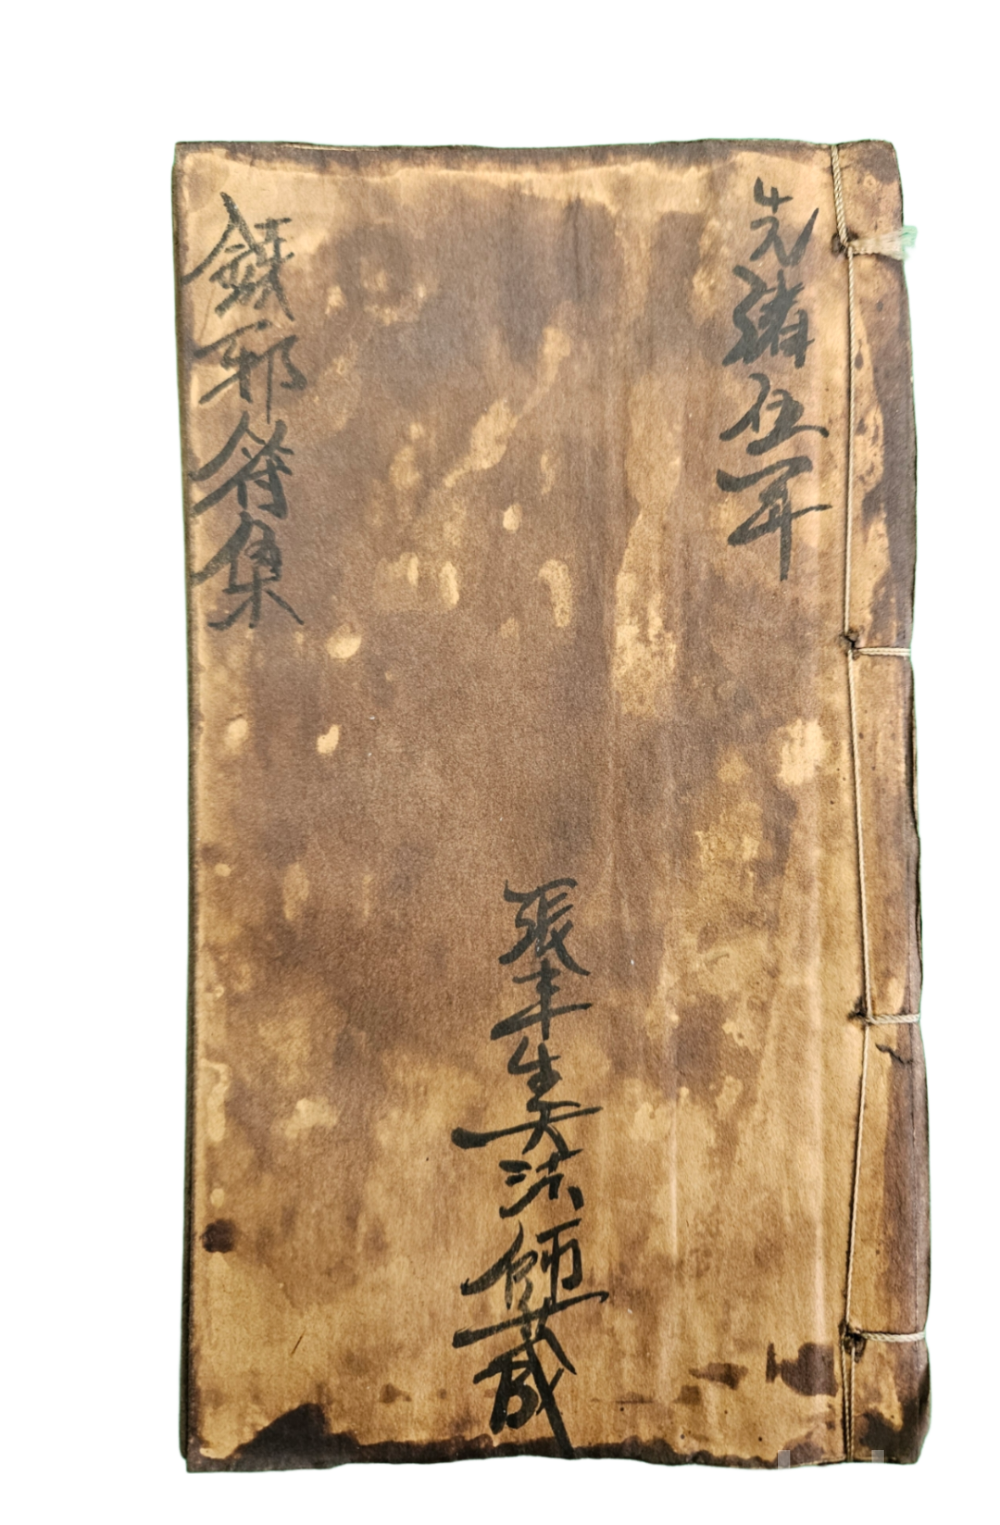 光緒伍年
張丰生大法師藏
邪符集